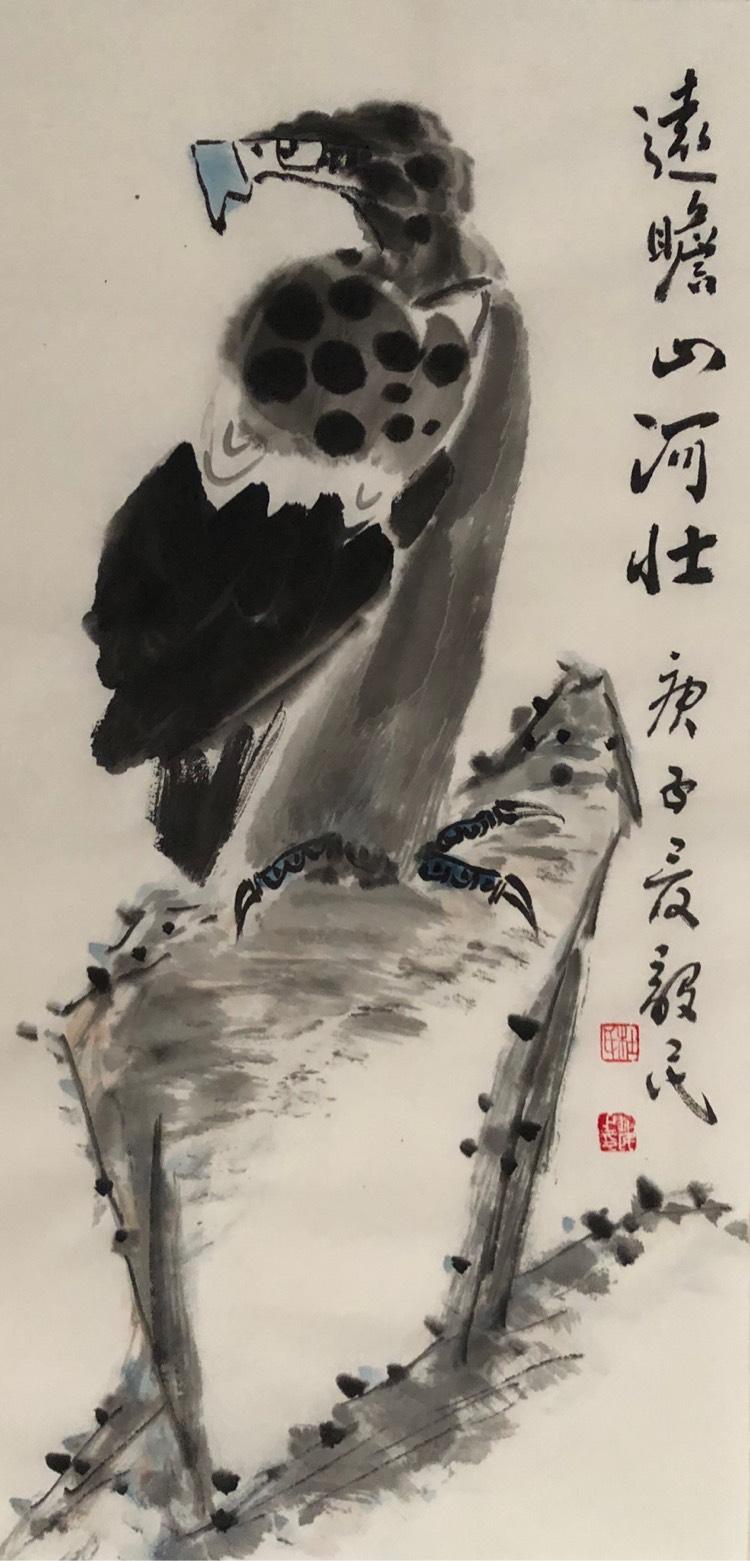 遠瞻山河壯 庚子夏毅民